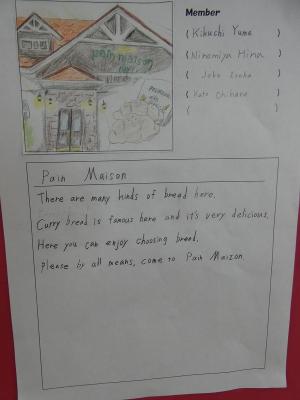 Member
(Kikuchi Yume )
(Ninomiya Hina )
( Joko Isoka )
( Kato Chiharu )
( )
pain maison
Pain Maison
There are many kinds of bread here.
Curry bread is famous here and it's very delicious.
Here you can enjoy choosing bread.
Please by all means, come to Pain Maizon.